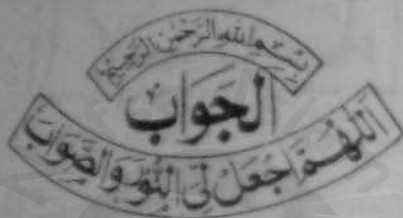 بِسْمِ اللهِ الرَّحْمٰنِ الرَّحِيْمِ
الجَوَاب
اَللّٰهُمَّ اجْعَلْ لِی النُّوْرَ وَالصَّوَاب